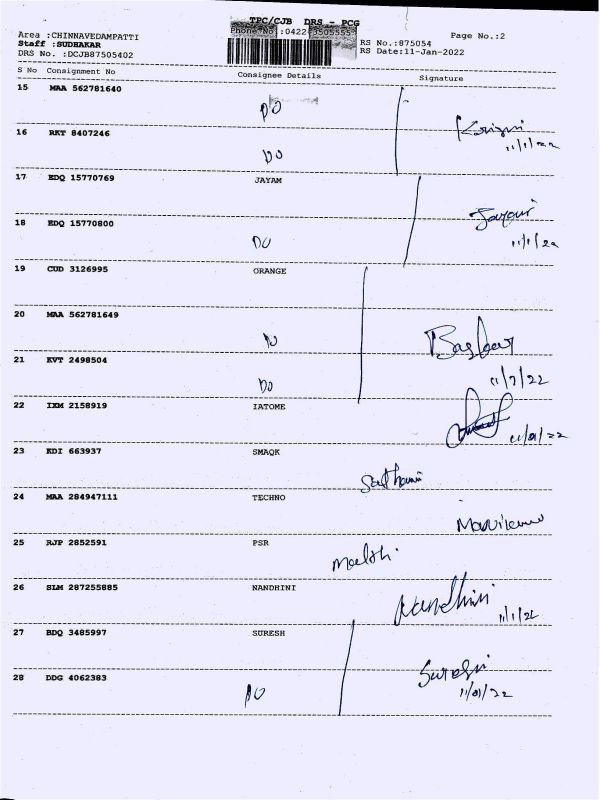 TPC/CJB DRS - PCG
Area :CHINNAVEDAMPATTI Phone No.:0422-3505555 Page No.:2
Staff :SUDHAKAR RS No.:875054
DRS No. :DCJB87505402 RS Date:11-Jan-2022
S No Consignment No Consignee Details Signature
15 MAA 562781640
DO
16 RKT 8407246
DO 11/1/22
17 EDQ 15770769 JAYAM
18 EDQ 15770800
DO 11/1/22
19 CUD 3126995 ORANGE
20 MAA 562781649
DO Baskar
21 KVT 2498504
DO 11/1/22
22 IXM 2158919 IATOME
11/01/22
23 KDI 663937 SMAQK
24 MAA 284947111 TECHNO
25 RJP 2852591 PSR
26 SLM 287255885 NANDHINI
Nandhini 11/1/22
27 BDQ 3485997 SURESH
28 DDG 4062383
DO 11/01/22